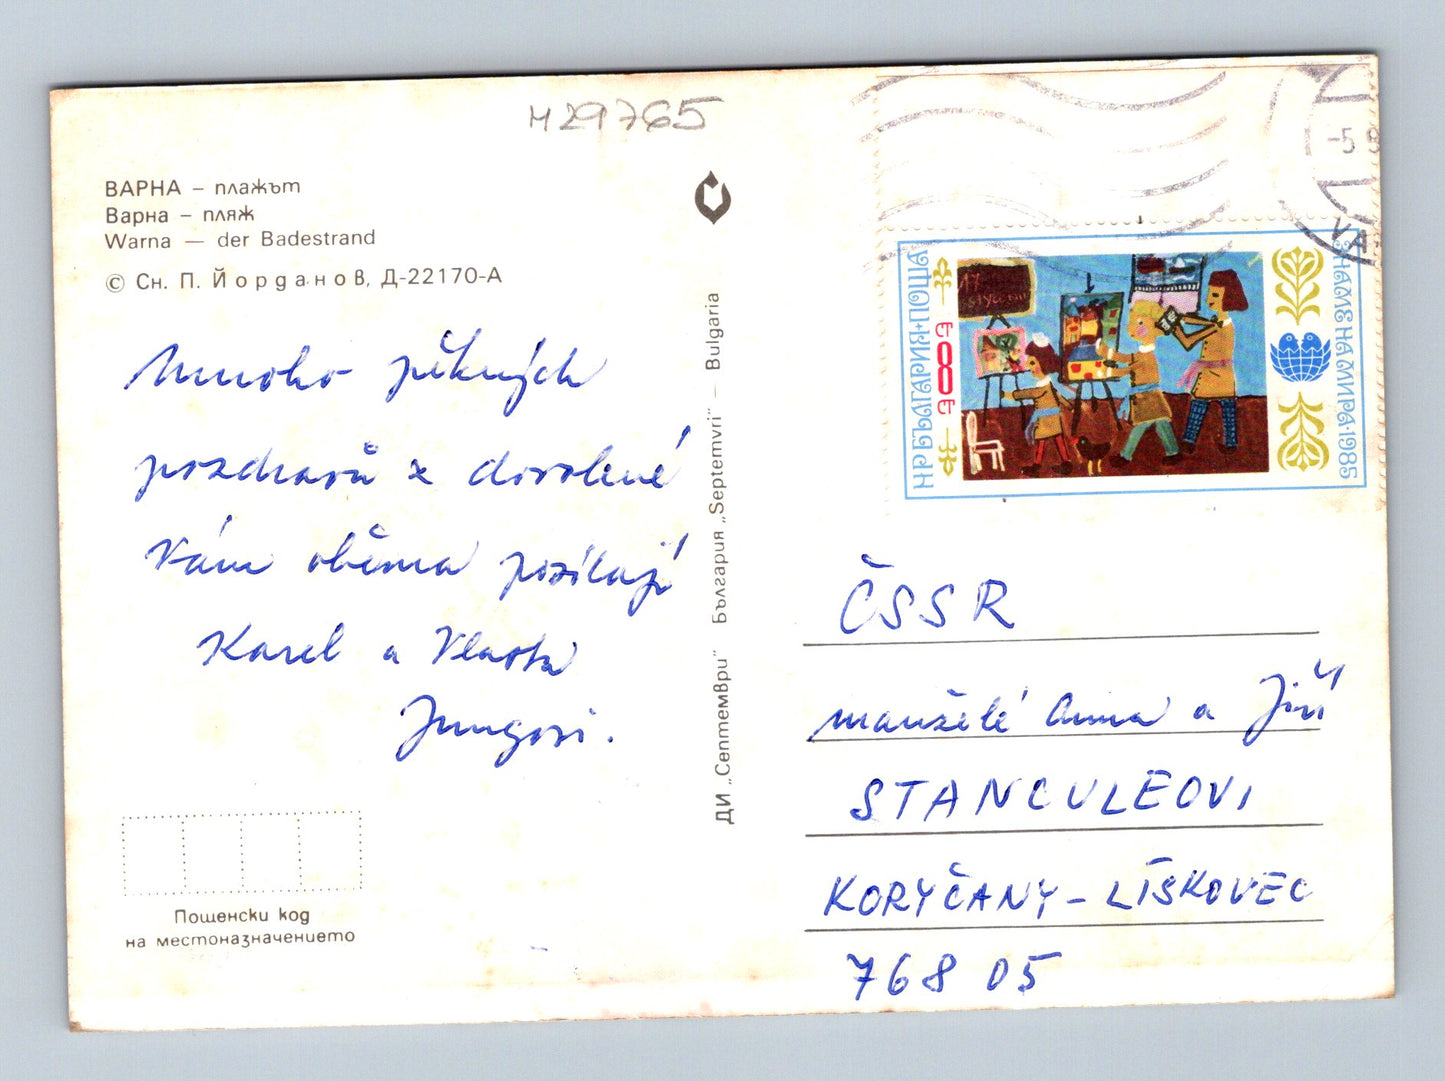 H29765
ВАРНА – плажът
Варна – пляж
Warna — der Badestrand
© Сн. П. Йорданов, Д-22170-А
Mnoho pěkných
pozdravů z dovolené
Vám oběma posílají
Karel a Vlasta
Jungovi.
Пощенски код
на местоназначението
ДИ „Септември" България „Septemvri" – Bulgaria
-5 8
VA
НР БЪЛГАРИЯ•ПОЩА
8
ЗНАМЕ НА МИРА·1985
ČSSR
manželé Anna a Jiří
STANCULEOVI
KORYČANY – LÍSKOVEC
768 05